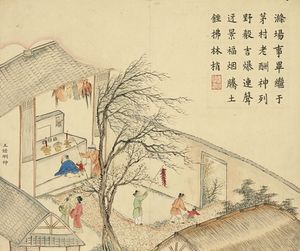 滌場事畢繼于
茅村老酬神列
野殽吉爆連聲
迓景福烟騰土
銼拂林梢